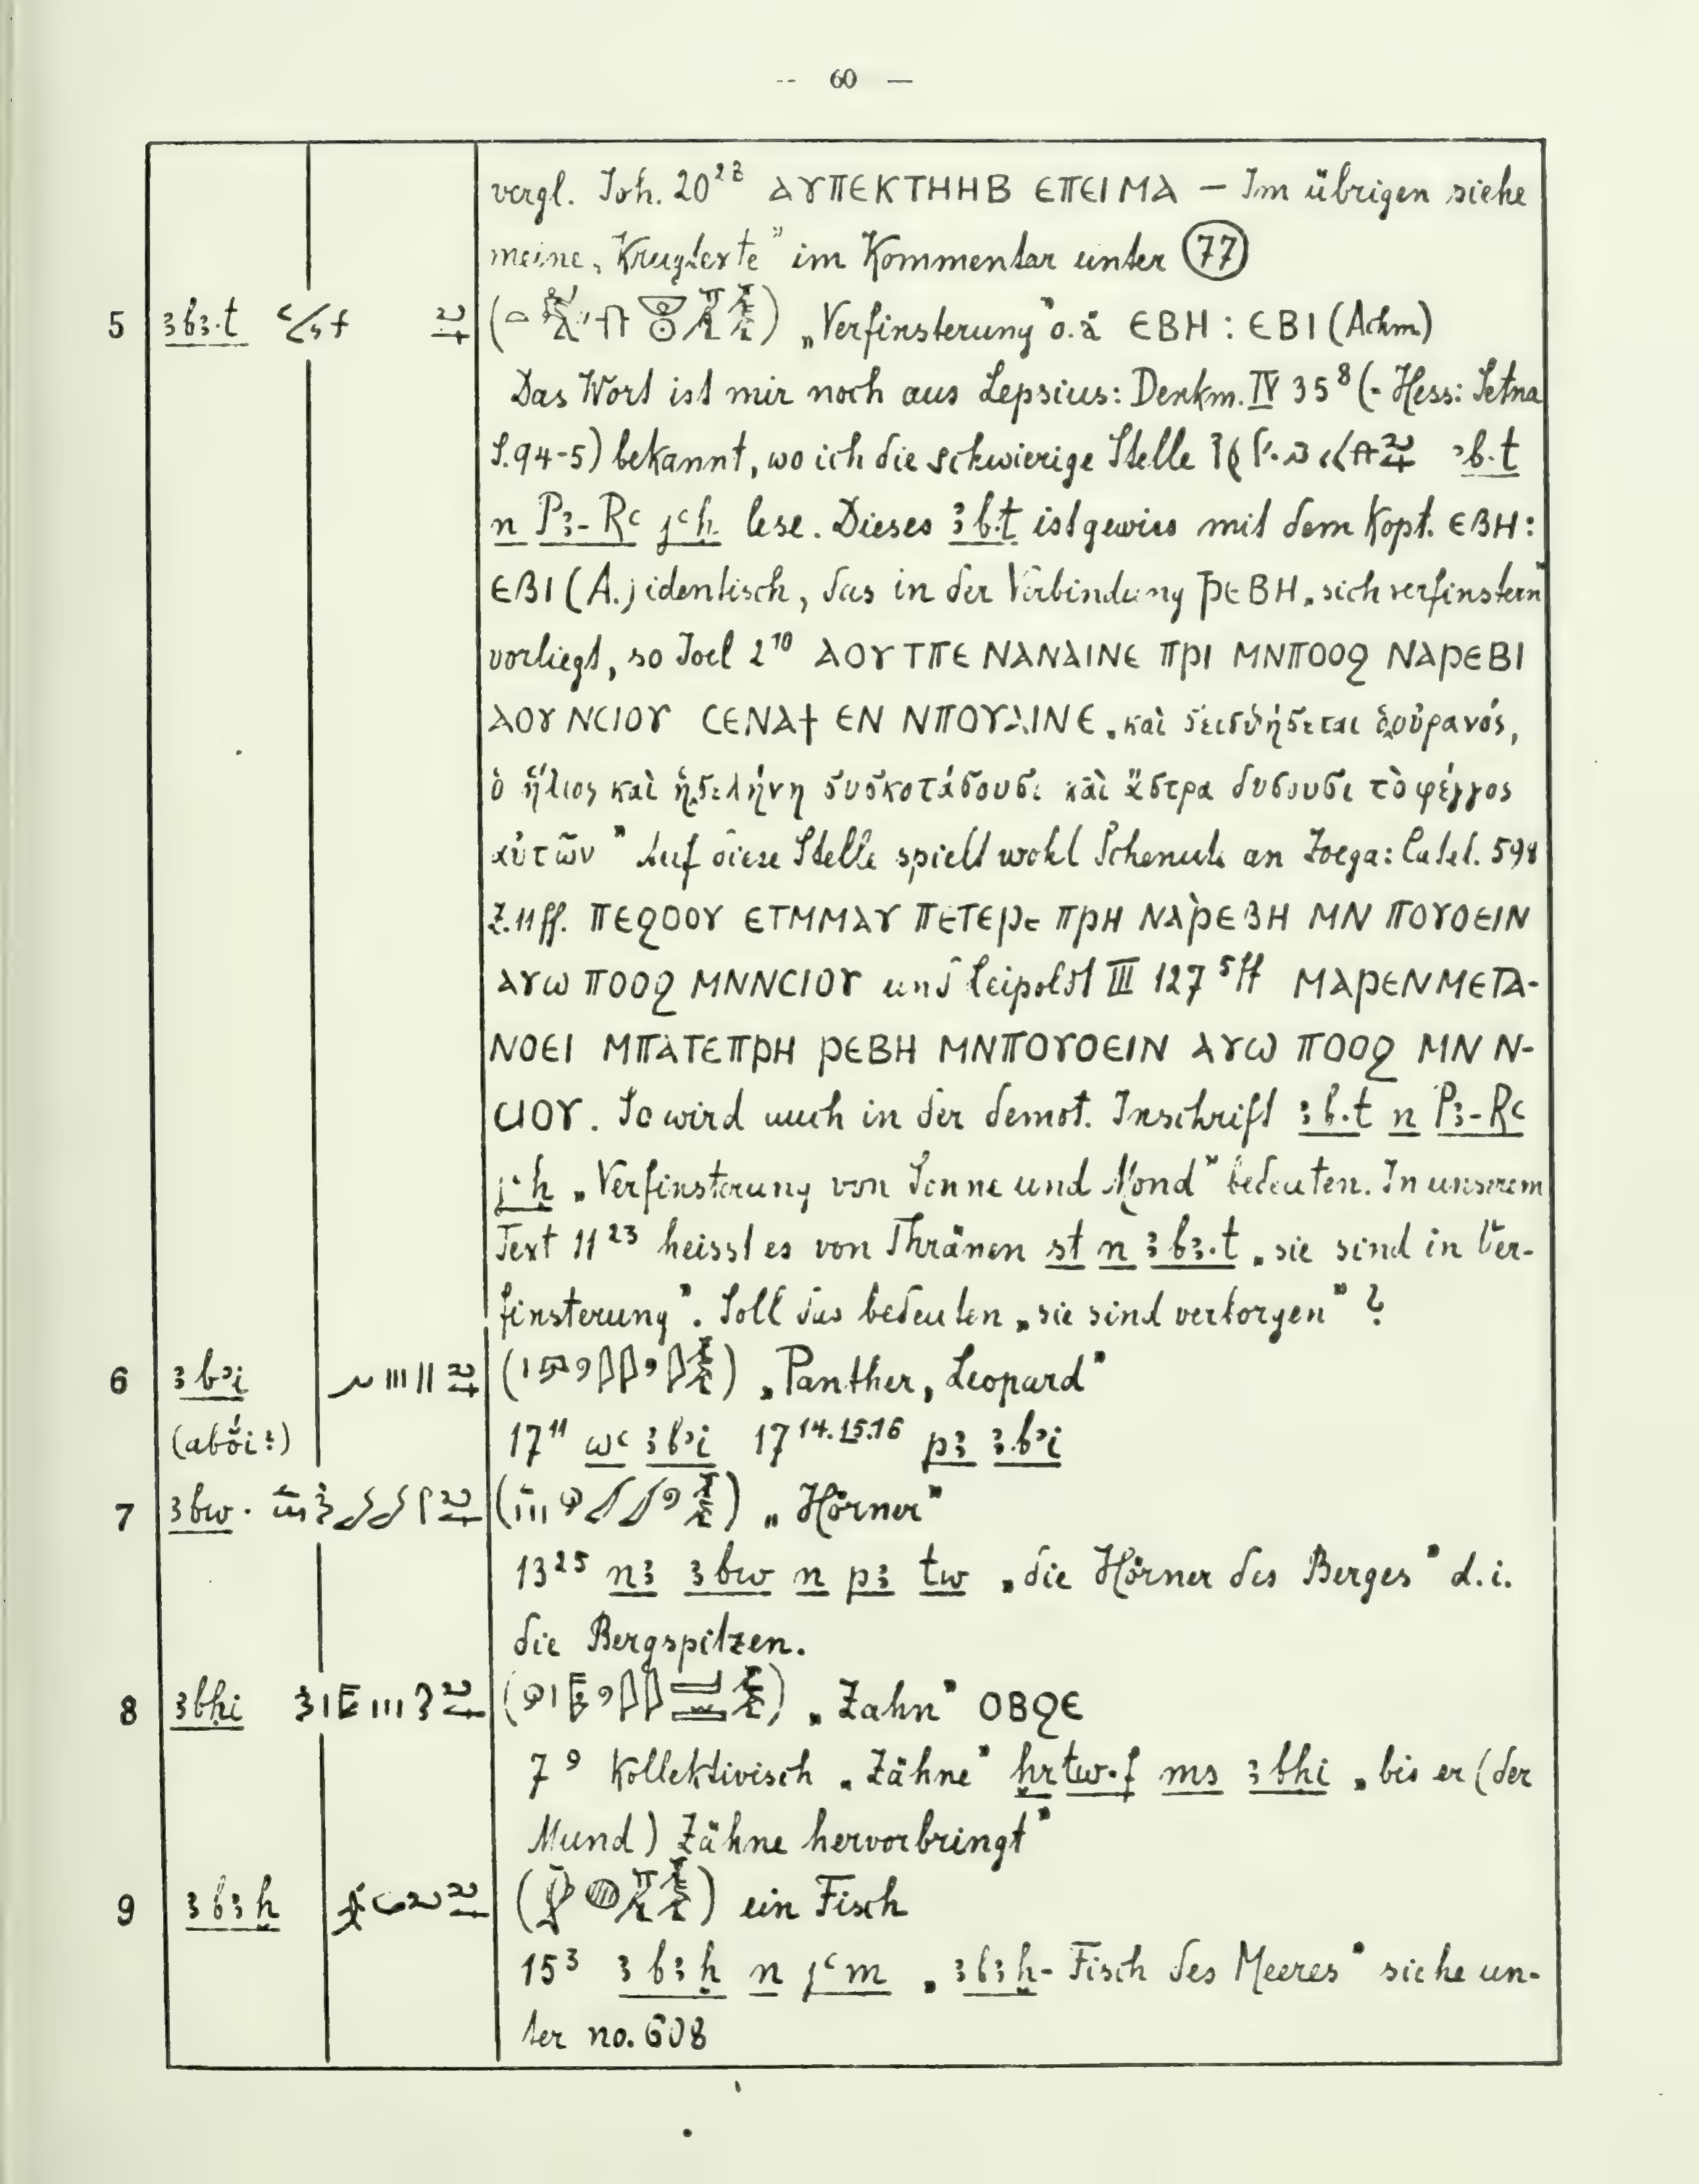 -- 60 —
vergl. Joh. 20²⁸ ⲀⲨⲠⲈⲔⲦⲎⲎⲂ ⲈⲠⲈⲒⲘⲀ — Im übrigen siehe
meine „Krugtexte" im Kommentar unter (77)
5 ꜣbꜣ.t ( ) „Verfinsterung" o.ä ⲈⲂⲎ : ⲈⲂⲒ (Achm)
Das Wort ist mir noch aus Lepsius: Denkm. IV 35⁸ (- Hess: Setna
S. 94-5) bekannt, wo ich die schwierige Stelle ꜣb.t
n Pꜣ-Rꜥ jꜥḥ lese. Dieses ꜣb.t ist gewiss mit dem Kopt. ⲈⲂⲎ :
ⲈⲂⲒ (A.) identisch, das in der Verbindung ⲢⲈⲂⲎ „sich verfinstern"
vorliegt, so Joel 2¹⁰ ⲀⲞⲨ ⲦⲠⲈ ⲚⲀⲚⲀⲒⲚⲈ ⲠⲢⲒ ⲘⲚⲠⲞⲞϨ ⲚⲀⲢⲈⲂⲒ
ⲀⲞⲨ ⲚⲤⲒⲞⲨ ⲤⲈⲚⲀϮ ⲈⲚ ⲚⲠⲞⲨⲀⲒⲚⲈ „καὶ σεισθήσεται ὁ οὐρανός,
ὁ ἥλιος καὶ ἡ σελήνη συσκοτάσουσι καὶ ἄστρα δυσουσι τὸ φέγγος
αὐτῶν" Auf diese Stelle spielt wohl Schenute an Zoega: Catal. 598
Z. 11 ff. ⲠⲈϨⲞⲞⲨ ⲈⲦⲘⲘⲀⲨ ⲠⲈⲦⲈⲢⲈ ⲠⲢⲎ ⲚⲀⲢⲈⲂⲎ ⲘⲚ ⲠⲞⲨⲞⲈⲒⲚ
ⲀⲨⲰ ⲠⲞⲞϨ ⲘⲚⲚⲤⲒⲞⲨ und Leipoldt III 127⁵ff ⲘⲀⲢⲈⲚⲘⲈⲦⲀ-
ⲚⲞⲈⲒ ⲘⲠⲀⲦⲈⲠⲢⲎ ⲢⲈⲂⲎ ⲘⲚⲠⲞⲨⲞⲈⲒⲚ ⲀⲨⲰ ⲠⲞⲞϨ ⲘⲚ Ⲛ-
ⲤⲒⲞⲨ. So wird auch in der demot. Inschrift ꜣb.t n Pꜣ-Rꜥ
jꜥḥ „Verfinsterung von Sonne und Mond" bedeuten. In unserem
Text 11²³ heisst es von Thränen st n ꜣbꜣ.t „sie sind in Ver-
finsterung". Soll das bedeuten „sie sind verborgen" ?
6 ꜣbʾi ( ) „Panther, Leopard"
(abói?) 17¹¹ wꜥ ꜣbʾi 17¹⁴·¹⁵·¹⁶ pꜣ ꜣbʾi
7 ꜣbw. ( ) „Hörner"
13²⁵ nꜣ ꜣbw n pꜣ tw „die Hörner des Berges" d.i.
die Bergspitzen.
8 ꜣbḥi ( ) „Zahn" ⲞⲂϨⲈ
7⁹ Kollektivisch „Zähne" ḥrtw.f ms ꜣbḥi „bis er (der
Mund) Zähne hervorbringt"
9 ꜣbꜣḫ ( ) ein Fisch
15³ ꜣbꜣḫ n jꜥm „ꜣbꜣḫ-Fisch des Meeres" siehe un-
ter no. 608